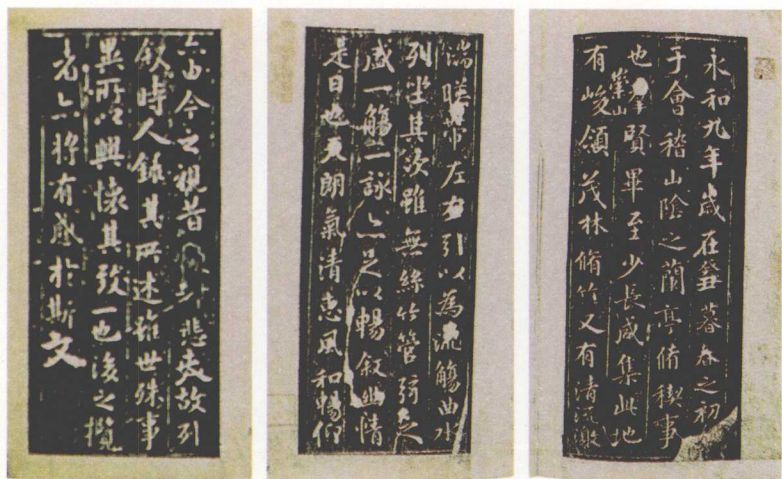 永和九年歲在癸丑暮春之初
于會稽山陰之蘭亭脩禊事
也羣賢畢至少長咸集此地
有崇山峻領茂林脩竹又有清流激
湍暎帶左右引以為流觴曲水
列坐其次雖無絲竹管弦之
盛一觴一詠亦足以暢敘幽情
是日也天朗氣清惠風和暢仰
亦由今之視昔悲夫故列
敘時人錄其所述雖世殊事
異所以興懷其致一也後之攬
者亦將有感於斯文